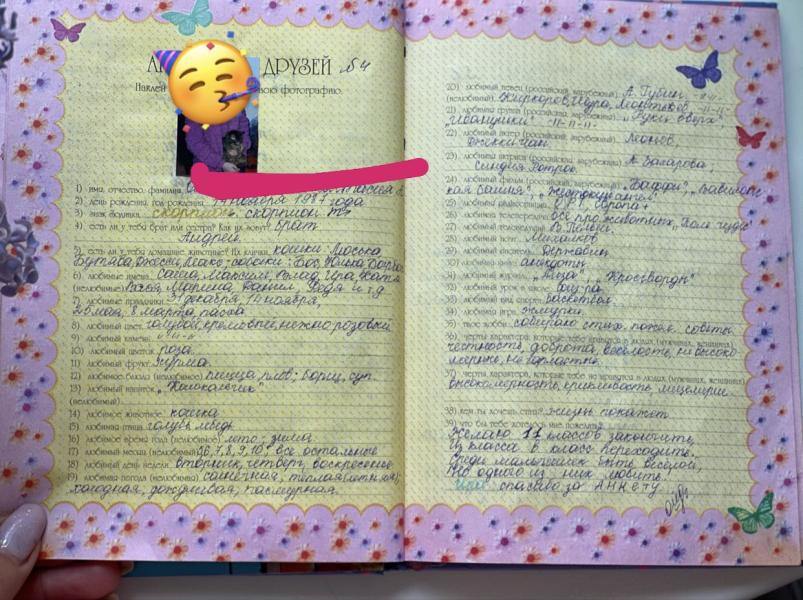 ДРУЗЕЙ №4
Наклей свою фотографию.
1) имя, отчество, фамилия
2) день рождения, год рождения 14 ноября 1987 года
3) знак зодиака скорпион. скорпион
4) есть ли у тебя брат или сестра? Как их зовут? Брат
Андрей.
5) есть ли у тебя домашние животные? Их клички. кошки Моська
6) любимые имена Саша, Максим, Влад, Ира, Катя
(нелюбимые) Марина, Даниил, Федя и т.д
7) любимые праздники 31 декабря, 14 ноября,
8 марта, пасха
8) любимый цвет голубой, кремовый, нежно розовый
9) любимый камень -"-"-
10) любимый цветок роза
11) любимый фрукт хурма.
12) любимое блюдо (нелюбимое) пицца, плов; борщ, суп.
13) любимый напиток „Колокольчик"
(нелюбимый)
14) любимое животное кошка
15) любимая птица голубь, лебедь
16) любимое время года (нелюбимое) лето; зима
17) любимый месяц (нелюбимый) 6, 7, 8, 9, 10, все остальные
18) любимый день недели вторник, четверг, воскресенье
19) любимая погода (нелюбимая) солнечная, тёплая (летняя);
холодная, дождливая, пасмурная.
20) любимый певец (российский, зарубежный) А. Губин -"-
(нелюбимый) Киркоров, Шура, Леонтьев -"-"-
21) любимая группа (российская, зарубежная) „Руки вверх",
„Иванушки" -"-"-"-
22) любимый актер (российский, зарубежный) Леонов,
Джеки Чан
23) любимая актриса (российская, зарубежная) А. Захарова,
Синдия Ротрок
24) любимый фильм (российский, зарубежный)
25) любимая радиостанция Европа+
26) любимая телепередача все про животных, „Поле чудес"
27) любимый телеведущий
28) любимый поэт Михалков
29) любимый писатель Державин
30) анекдоты
31) любимый журнал „Лиза", „Кроссворды"
32) любимый урок в школе физ-ра
33) любимый вид спорта баскетбол.
34) любимая игра жмурки.
35) твое хобби собираю стих, пожел. советы.
36) черты характера, которые тебе нравятся в людях (мужчинах, женщинах)
честность, доброта, весёлость, не высоко-
мерные, не горластые
37) черты характера, которые тебе не нравятся в людях (мужчинах, женщинах)
высокомерность, крикливость, лицемерие
38) кем ты хочешь стать? жизнь покажет
39) что бы тебе хотелось мне пожелать?
Желаю 11 классов закончить,
Из класса в класс переходить.
Среди мальчишек быть весёлой,
Но одного из них любить!
спасибо за АНКЕТУ